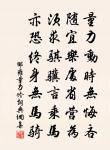 量力動時無悔吝
隨宜樂處省營為
須求騏驥方乘馬
亦恐終身無馬騎
邵雍量力吟